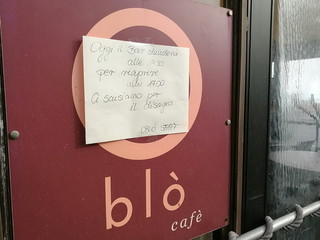 Oggi il Bar chiuderà
alle 9:30
per riaprire
alle 17:00
Ci scusiamo per
il disagio
blò STAFF
blò
cafè